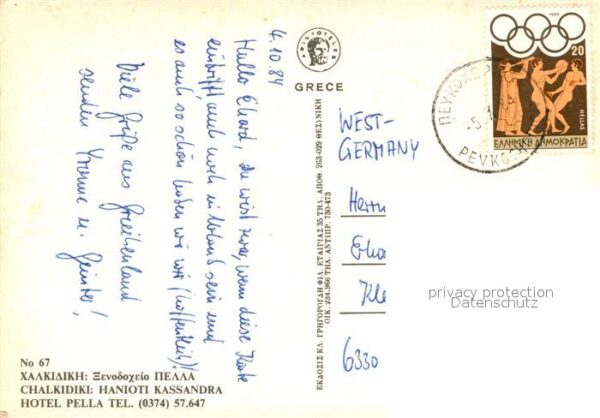 4.10.84
Hallo Ekard, du wirst zwar, wenn diese Karte
eintrifft, auch noch in Urlaub sein und
es auch so schön haben wie wir (hoffentlich)!
Viele Grüße aus Griechenland
senden Yvonne u. Günter!
ARISTOTELES
GRECE
ΕΚΔΟΣΙΣ ΚΛ. ΓΡΗΓΟΡΟΥΔΗ ΦΙΛ. ΕΤΑΙΡΙΑΣ 35 ΤΗΛ. ΑΠΟΘ. 263-029 ΘΕΣ)ΝΙΚΗ
ΟΙΚ. 234.966 ΤΗΛ. ΑΝΤΙΠΡ. 730-473
1984
20
HELLAS
ΕΛΛΗΝΙΚΗ ΔΗΜΟΚΡΑΤΙΑ
ΠΕΥΚΟΧΩΡ
PEVKO
WEST-
GERMANY
Herrn
Eka
Kle
6330
privacy protection
Datenschutz
No 67
ΧΑΛΚΙΔΙΚΗ: Ξενοδοχείο ΠΕΛΛΑ
CHALKIDIKI: HANIOTI KASSANDRA
HOTEL PELLA TEL. (0374) 57.647